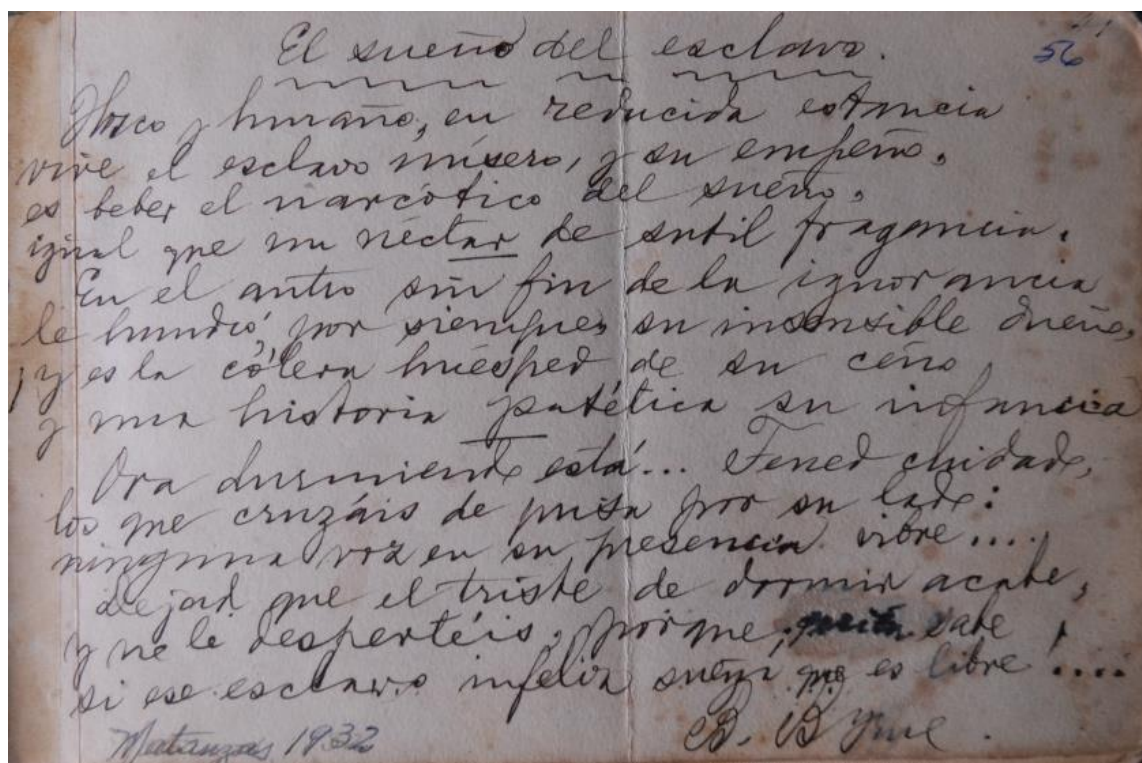 El sueño del esclavo.
56
Hosco y huraño, en reducida estancia
vive el esclavo mísero, y su empeño,
es beber el narcótico del sueño,
igual que un néctar de sutil fragancia.
En el antro sin fin de la ignorancia
le hundió, por siempre, su insensible dueño,
¡y es la cólera huésped de su ceño,
y una historia patética su infancia
Ora durmiendo está... Tened cuidado,
los que cruzáis de prisa por su lado:
ninguna voz en su presencia vibre....
Dejad que el triste de dormir acabe,
y no le despertéis, porque ¡quién sabe
si ese esclavo infeliz sueña que es libre!....
Matanzas, 1932
B. Byrne.